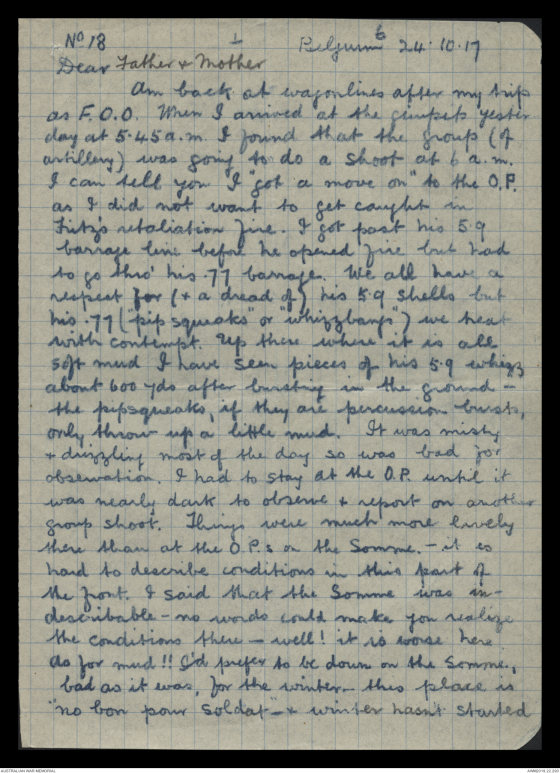 No 18 1 Belgium 6 24.10.17
Dear Father & Mother
Am back at wagonlines after my trip
as F.O.O. When I arrived at the gunpits yester
day at 5.45 a.m. I found that the group (of
artillery) was going to do a shoot at 6 a.m.
I can tell you I "got a move on" to the O.P.
as I did not want to get caught in
Fritz's retaliation fire. I got past his 5.9
barrage line before he opened fire but had
to go thro' his .77 barrage. We all have a
respect for (& a dread of) his 5.9 shells but
his .77 ("pip squeaks" or "whizzbangs") we treat
with contempt. Up there where it is all
soft mud I have seen pieces of his 5.9 whizz
about 600 yds after bursting in the ground -
the pipsqueaks, if they are percussion bursts,
only throw up a little mud. It was misty
& drizzling most of the day so was bad for
observation. I had to stay at the O.P. until it
was nearly dark to observe & report on another
group shoot. Things were much more lively
there than at the O.P.s on the Somme. - it is
hard to describe conditions in this part of
the front. I said that the Somme was in-
describable - no words could make you realize
the conditions there - well! it is worse here
as for mud!! I'd prefer to be down on the Somme,
bad as it was, for the winter - this place is
"no bon pour soldat" - & winter hasn't started
AUSTRALIAN WAR MEMORIAL